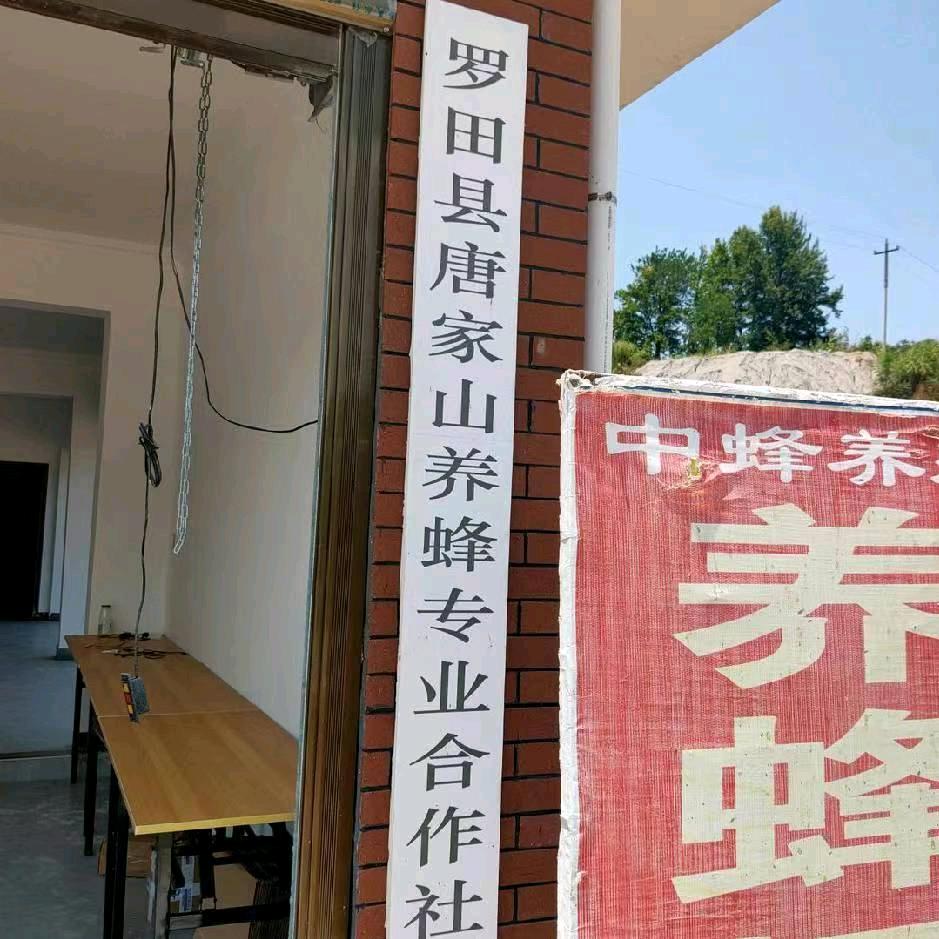 罗田县唐家山养蜂专业合作社
中蜂养
养
蜂